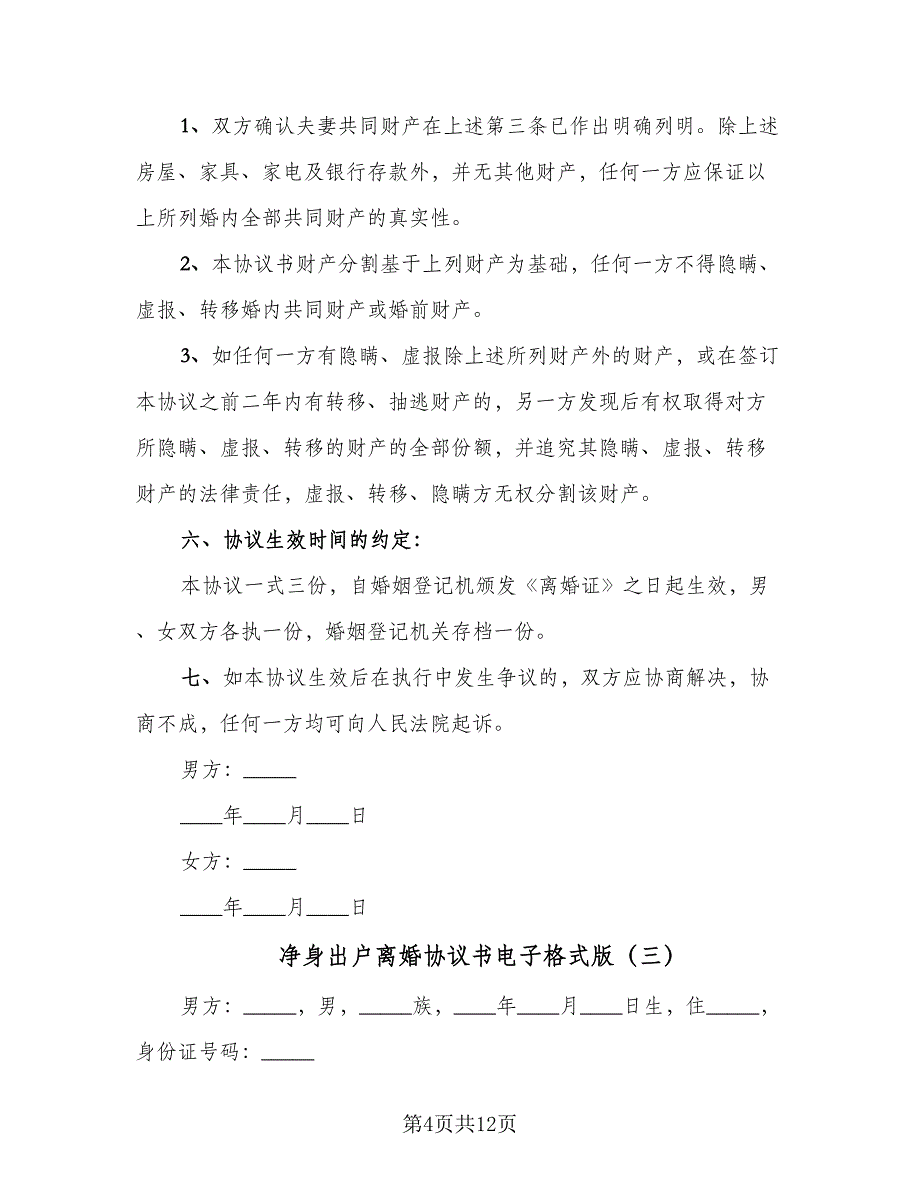 1、双方确认夫妻共同财产在上述第三条已作出明确列明。除上述
房屋、家具、家电及银行存款外，并无其他财产，任何一方应保证以
上所列婚内全部共同财产的真实性。
2、本协议书财产分割基于上列财产为基础，任何一方不得隐瞒、
虚报、转移婚内共同财产或婚前财产。
3、如任何一方有隐瞒、虚报除上述所列财产外的财产，或在签订
本协议之前二年内有转移、抽逃财产的，另一方发现后有权取得对方
所隐瞒、虚报、转移的财产的全部份额，并追究其隐瞒、虚报、转移
财产的法律责任，虚报、转移、隐瞒方无权分割该财产。
六、协议生效时间的约定：
本协议一式三份，自婚姻登记机颁发《离婚证》之日起生效，男
、女双方各执一份，婚姻登记机关存档一份。
七、如本协议生效后在执行中发生争议的，双方应协商解决，协
商不成，任何一方均可向人民法院起诉。
男方：_____
____年____月____日
女方：_____
____年____月____日
净身出户离婚协议书电子格式版（三）
男方：_____，男，_____族，____年____月____日生，住_____，
身份证号码：_____
第4页共12页